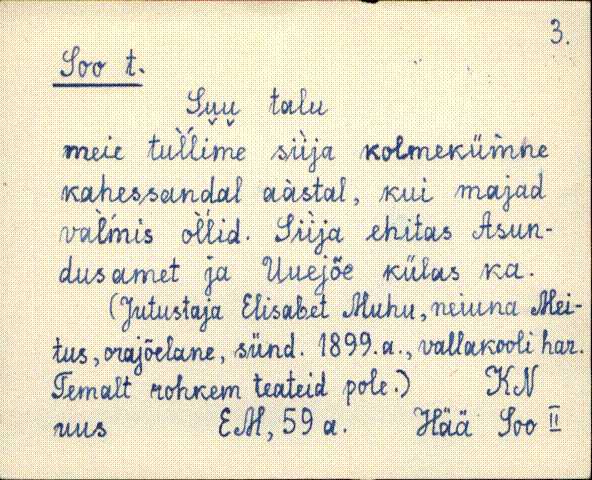 3.
Soo t.
Su̬u̬ talu
meie tul̀l̀ime siìja kolmekümne
kahessandal aàstal, kui majad
val̀mis ol̀lid. Siìja ehitas Asun-
dusamet ja Uuejõe külas ka.
(Jutustaja Elisabet Muhu, neiuna Mei-
tus, orajõelane, sünd. 1899. a., vallakooli har.
Temalt rohkem teateid pole.) KN
uus EM, 59 a. Hää Soo II